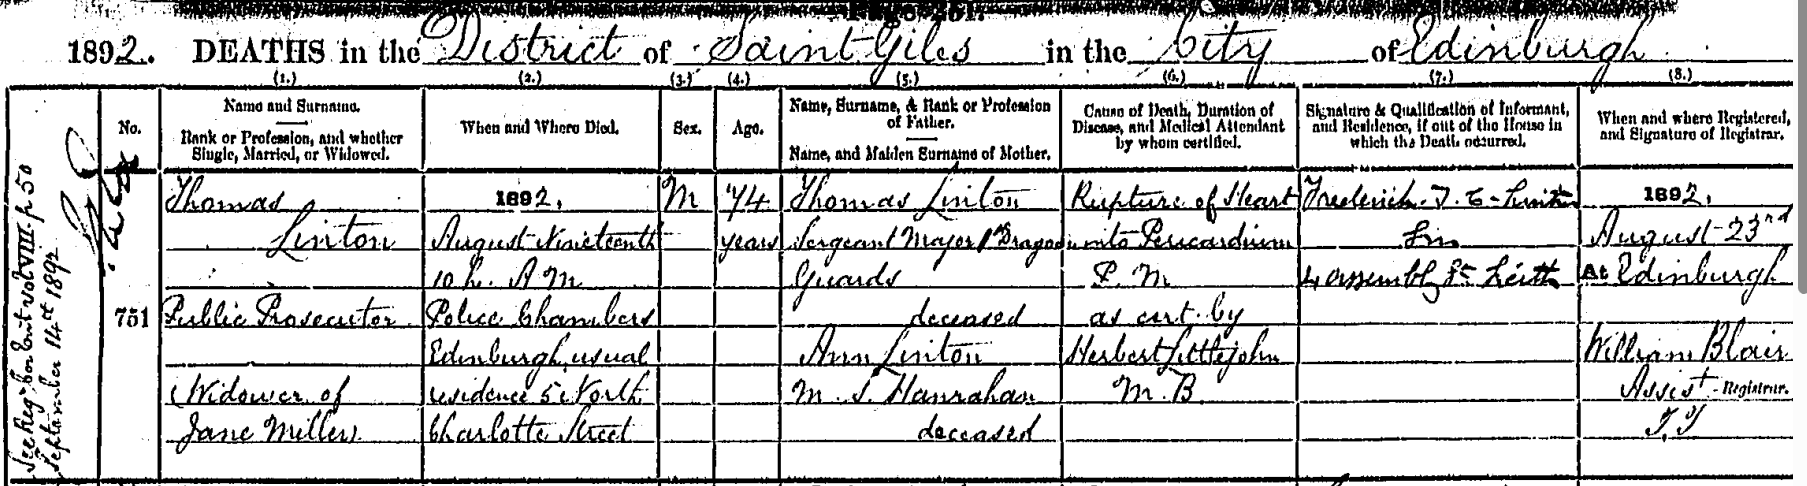 Page 251.
1892. DEATHS in the District of Saint Giles in the City of Edinburgh
(1.) (2.) (3.) (4.) (5.) (6.) (7.) (8.)
No.
Name and Surname.
Rank or Profession, and whether
Single, Married, or Widowed.
When and Where Died.
Sex.
Age.
Name, Surname, & Rank or Profession
of Father.
Name, and Maiden Surname of Mother.
Cause of Death, Duration of
Disease, and Medical Attendant
by whom certified.
Signature & Qualification of Informant,
and Residence, if out of the House in
which the Death occurred.
When and where Registered,
and Signature of Registrar.
See Reg. Cor. Ent. vol VIII. p. 50
September 14th 1892
751
Thomas
Linton
Public Prosecutor
(Widower of
Jane Miller)
1892,
August Nineteenth
10 h. A M
Police Chambers
Edinburgh, usual
residence 5 North
Charlotte Street
M
74
years
Thomas Linton
Sergeant Major Dragoon
Guards
deceased
Ann Linton
M. S. Hanrahan
deceased
Rupture of Heart
into Pericardium
P. M
as cert. by
Herbert Littlejohn
M. B
Frederick T. Linton
Son
4 Assembly St. Leith
1892,
August 23rd
At Edinburgh
William Blair
Assist - Registrar.